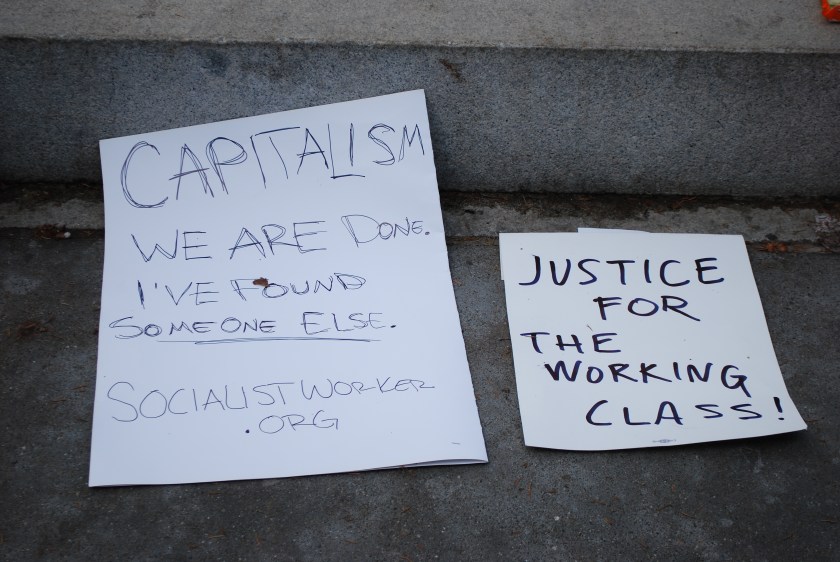 CAPITALISM
WE ARE DONE.
I'VE FOUND
SOMEONE ELSE.
SOCIALISTWORKER
.ORG
JUSTICE
FOR
THE
WORKING
CLASS!